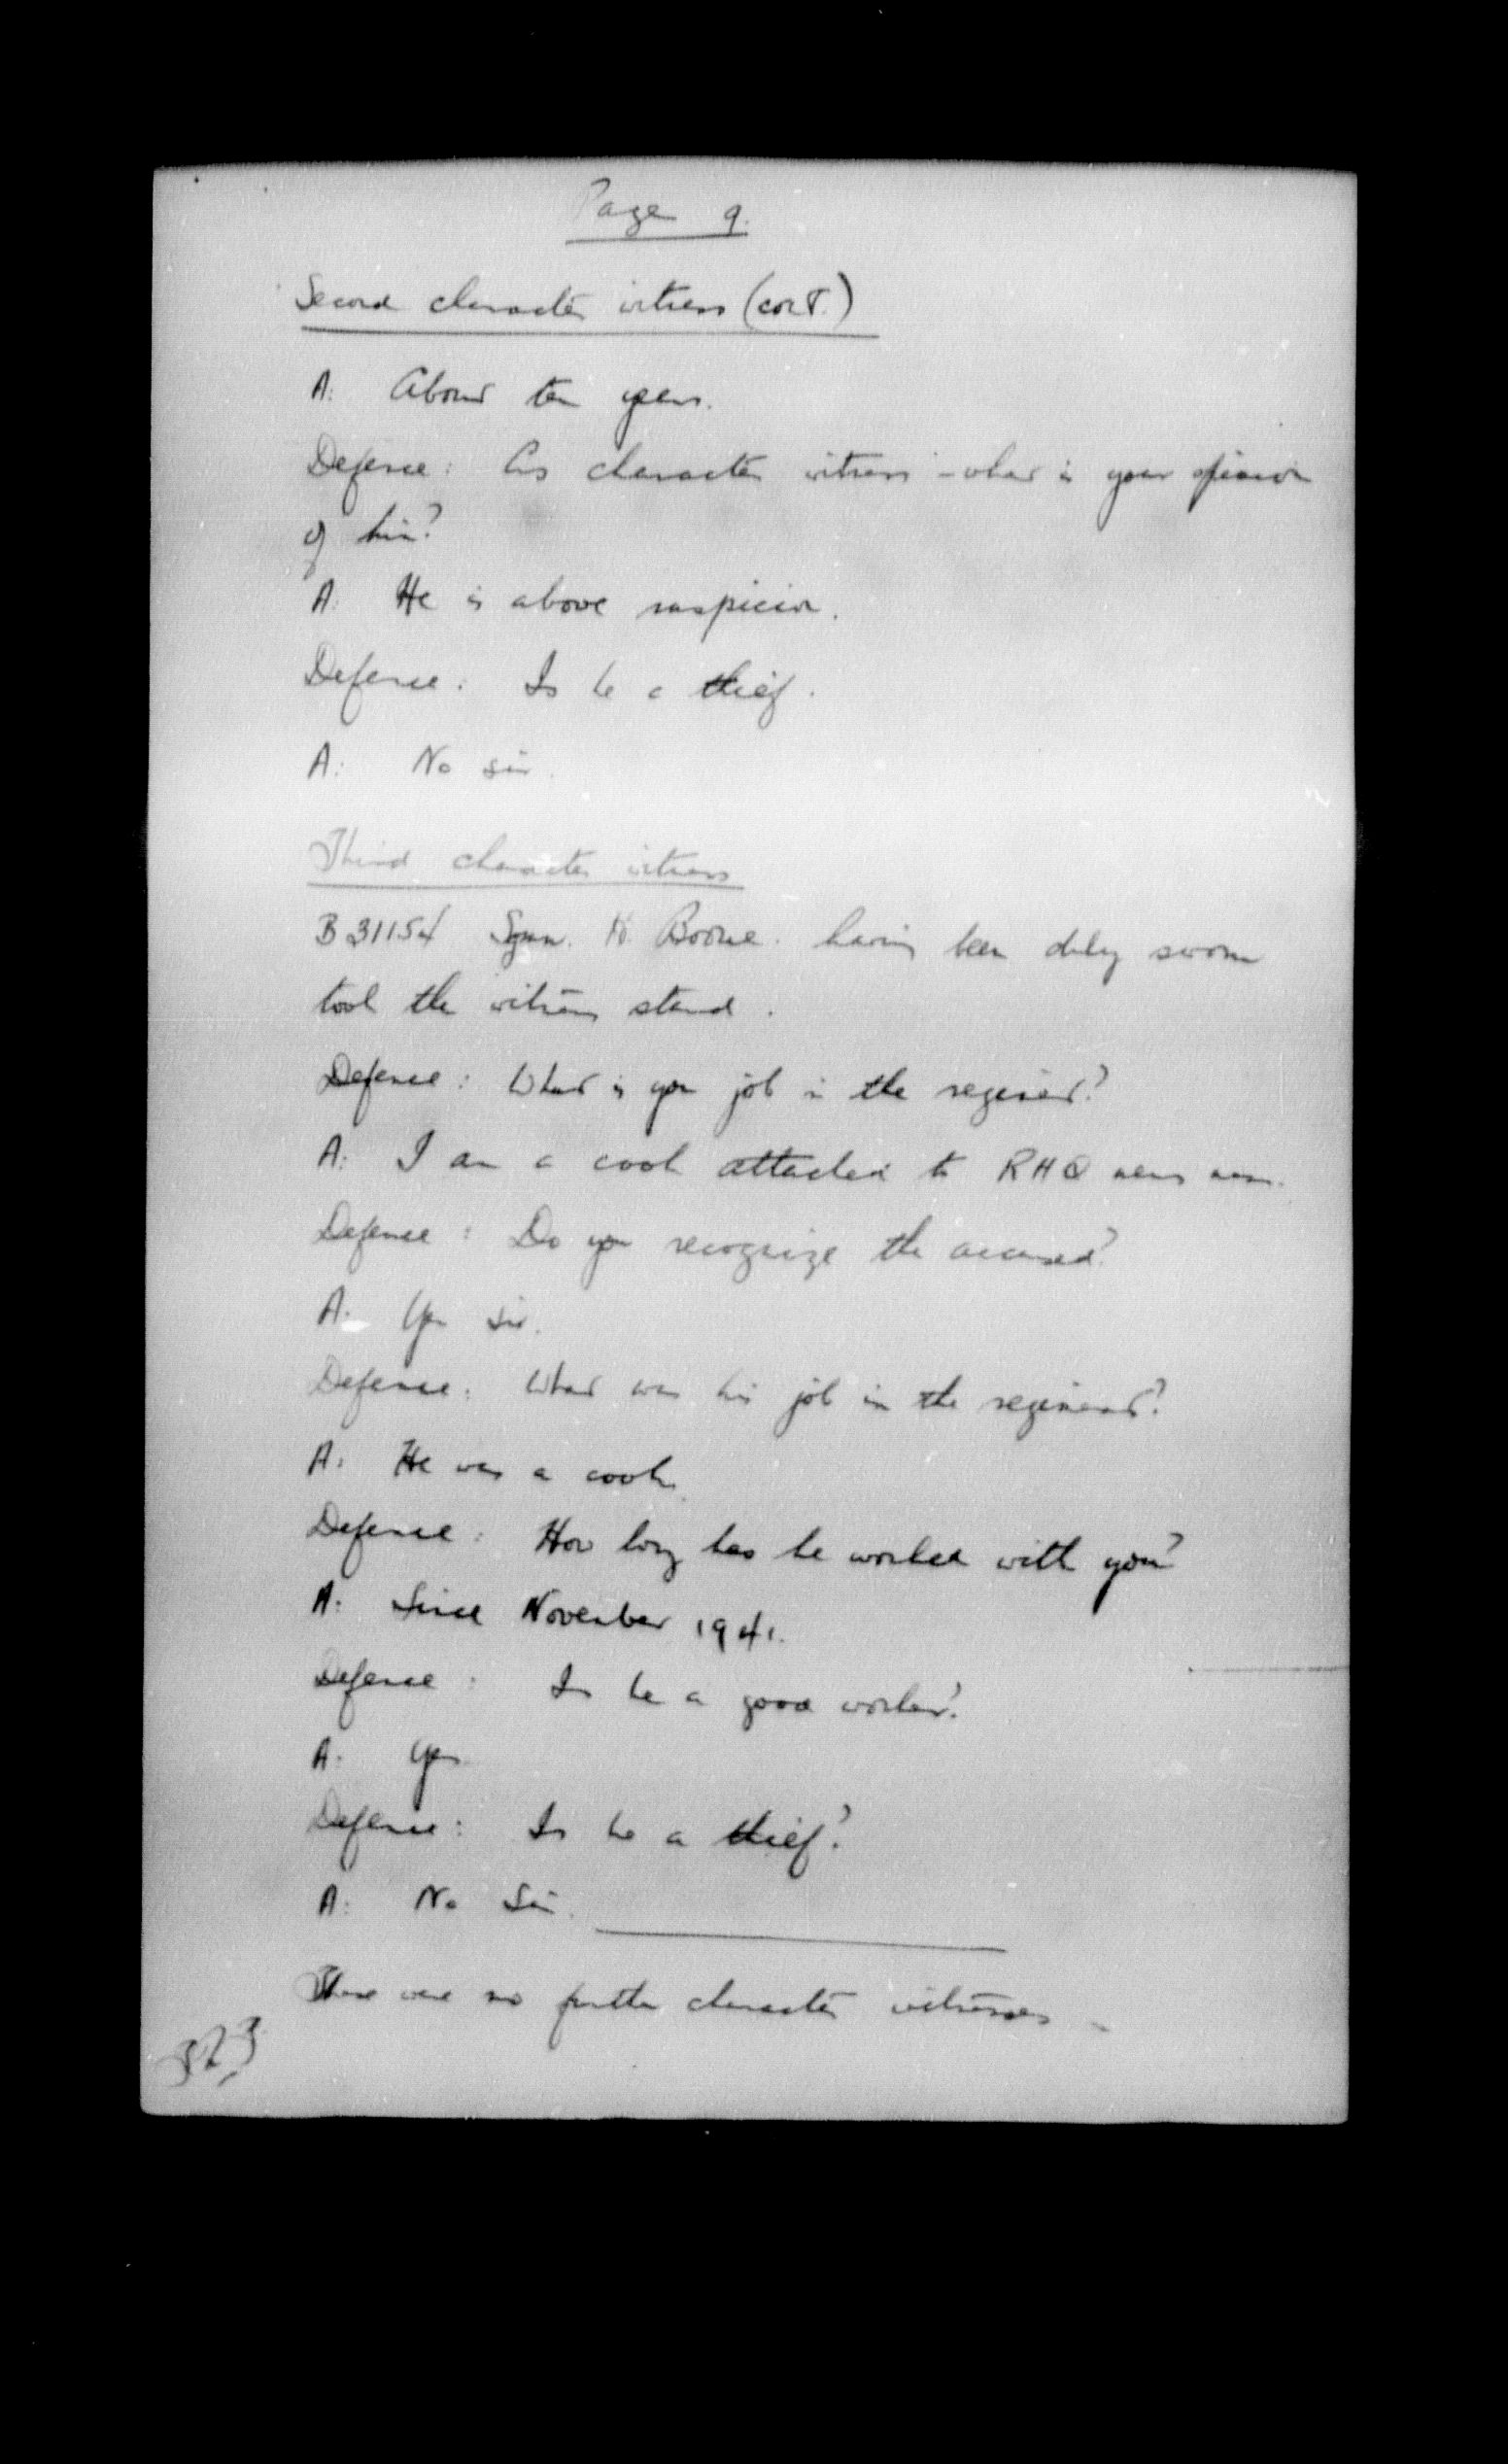 Page 9.
Second character witness (cont.)
A: About ten years.
Defense: As character witness - what is your opinion
of him?
A: He is above suspicion.
Defense: Is he a thief.
A: No sir.
Third character witness
B31154 Sgmn. Boone. having been duly sworn
took the witness stand.
Defense: What is your job in the regiment?
A: I am a cook attached to RHQ mens mess.
Defense: Do you recognize the accused?
A. Yes sir.
Defense: What was his job in the regiment?
A: He was a cook.
Defense: How long has he worked with you?
A: Since November 1941.
Defense: Is he a good worker?
A. Yes
Defense: Is he a thief?
A: No Sir.
There were no further character witnesses -
323